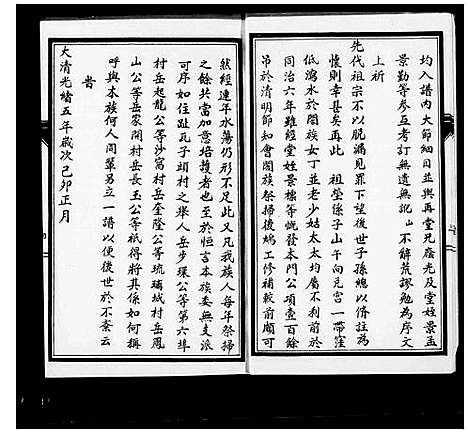 均入譜內大節細目並與再堂兄慶光及堂姪景孟
景勤等參互考訂無遺無訛山不辭荒謬勉為序文
上祈
先代祖宗不以脫漏見罪下望後世子孫總以脩註為
懷則幸甚矣再此 祖塋係子山午向兌宮一帶窪
低瀉水於闔族女丁並老少姑太太均屬不利前於
同治六年雖經堂姪景標等慨發本門公項壹百餘
吊於清明節知會闔族祭掃後鳩工修補較前頗可
然經連年水蕩仍形不足此又凡我族人每年祭掃
之餘共當加意培護者也至於恒言本族委無支派
可序如住趾瓦子頭村之举人岳步環公等第六埠
村岳起龍公等沙窩村岳奎隆公等琉璃城村岳鳳
山公等岳家閣村岳長玉公等祇得將具係如何稱
呼與本族何人同輩另立一譜以便後世於不紊云
旹
大清光緒五年歲次己卯正月